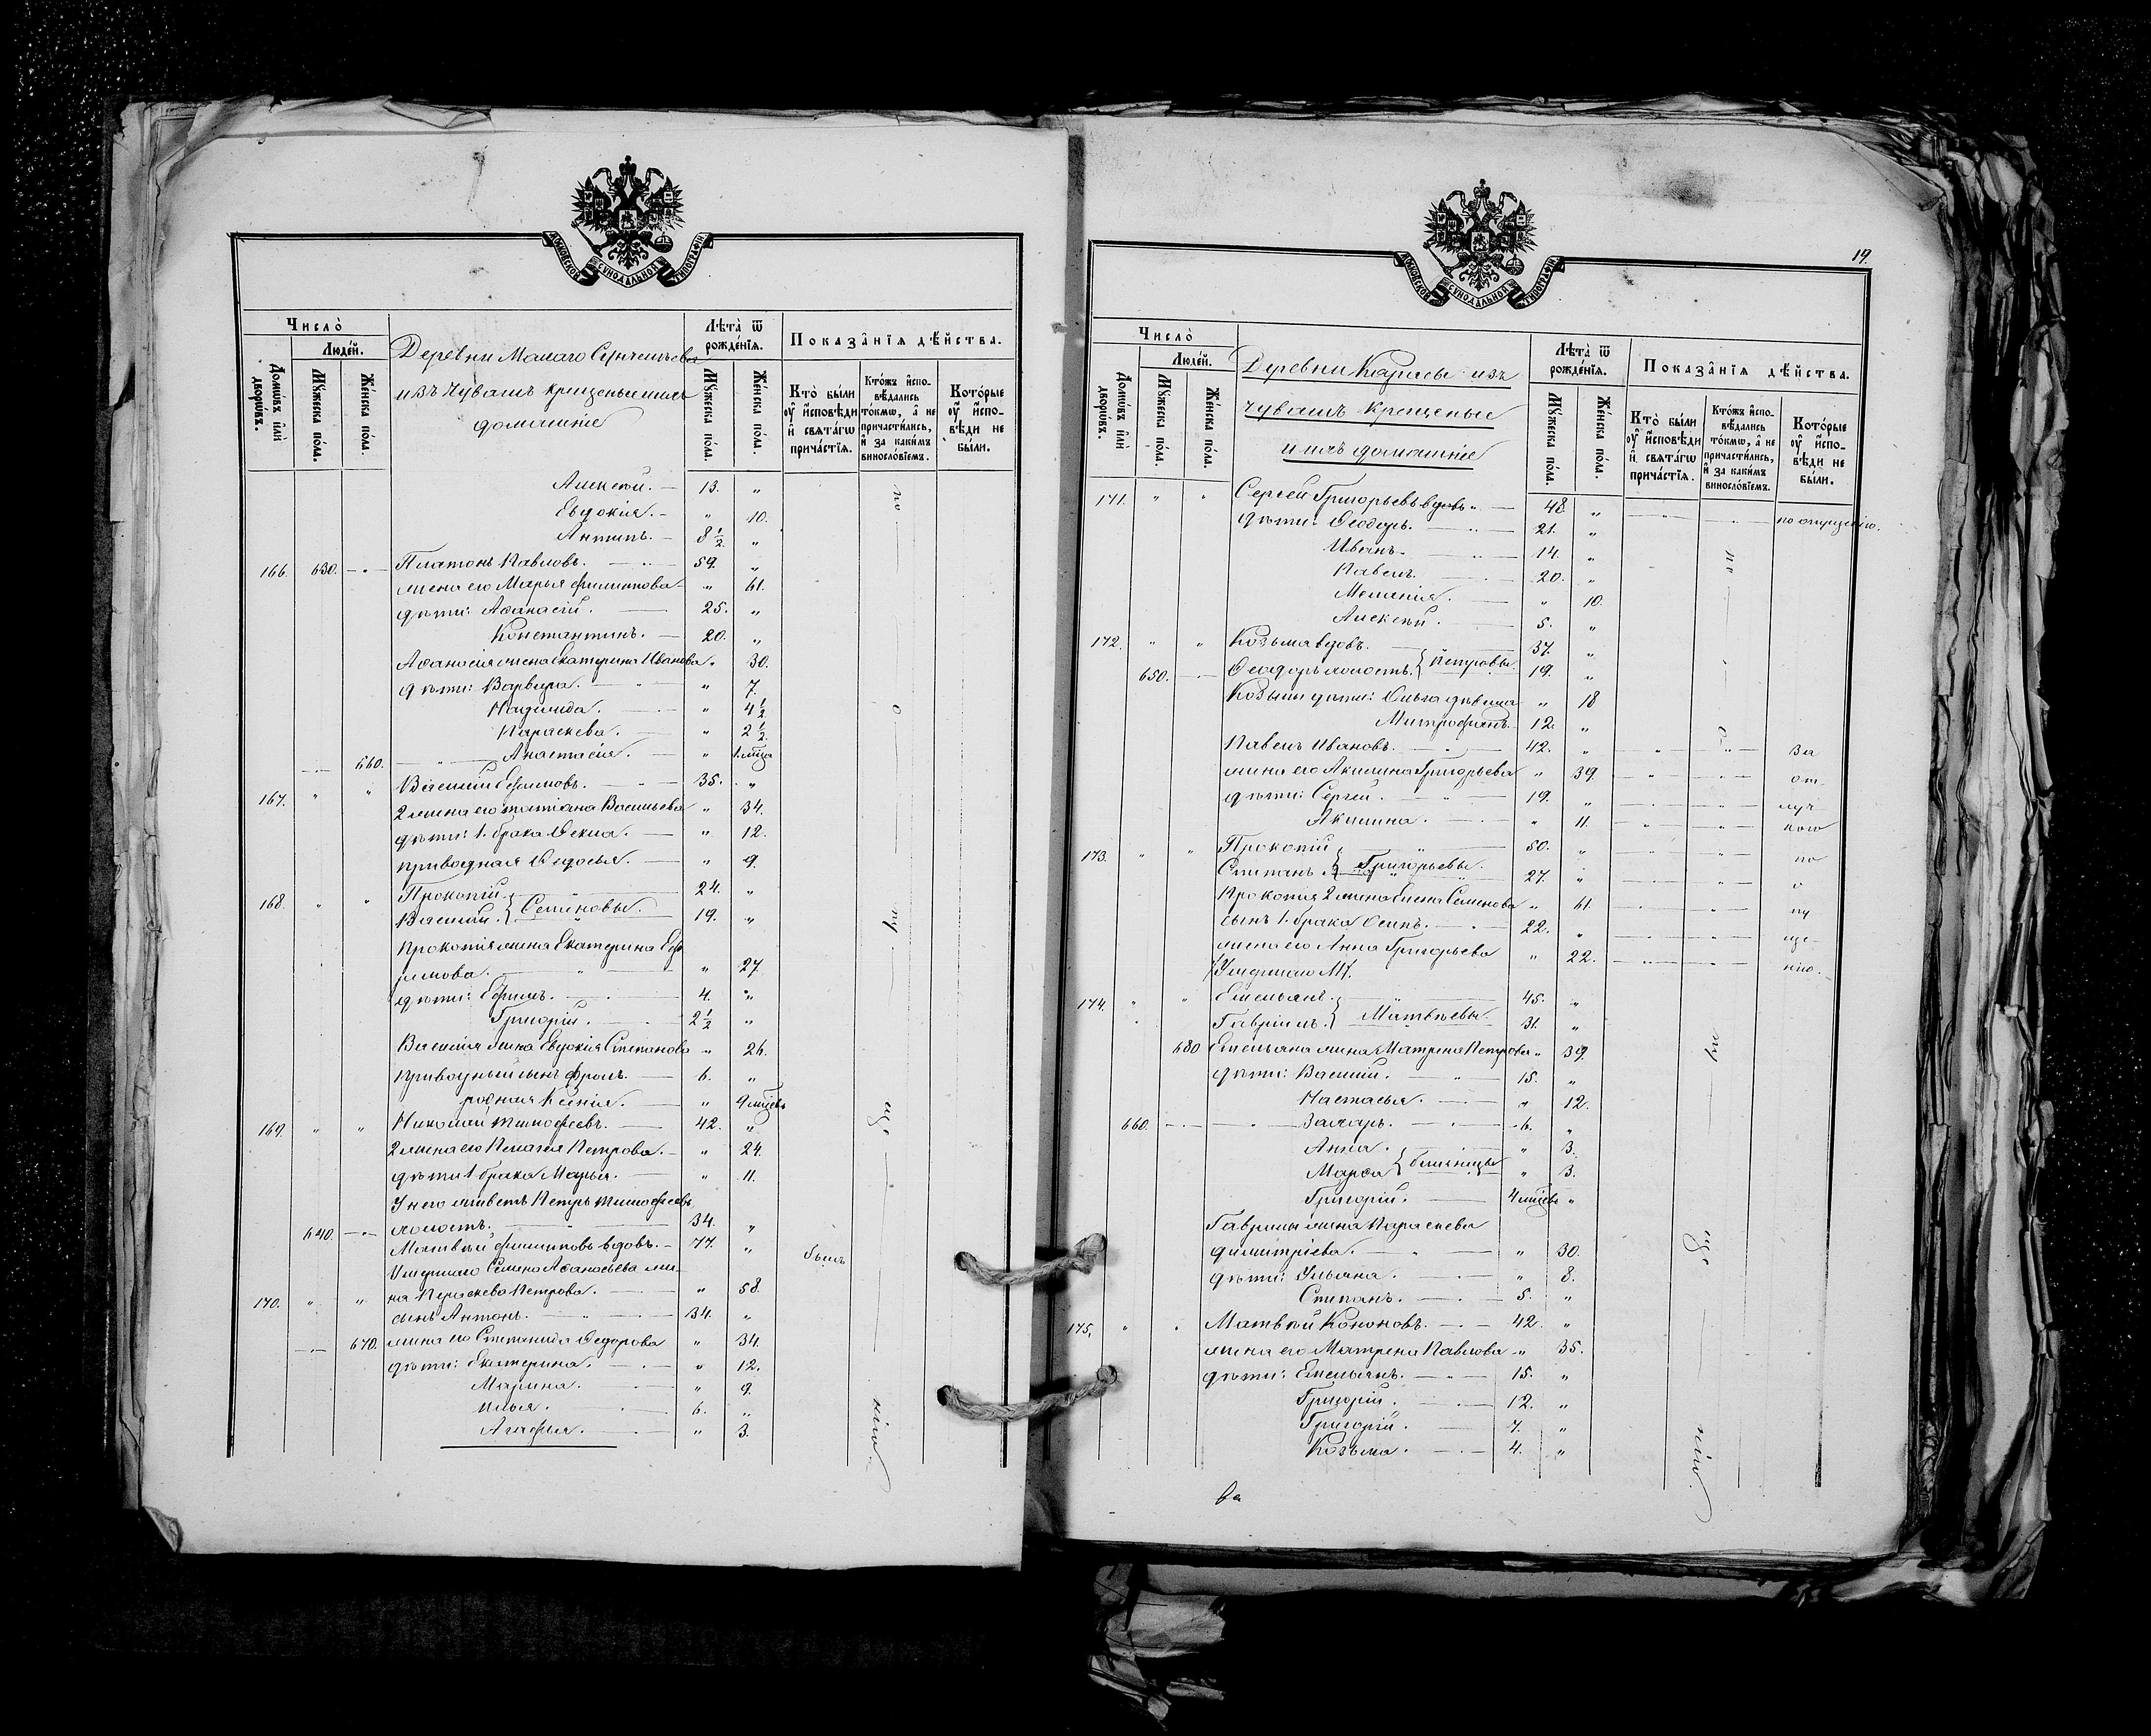 МОСКОВСКОЙ СѴНОДАЛЬНОЙ ТИПОГРАФІИ
Число̀
Люде́й.
Домѡ́въ и҆лѝ дворѡ́въ.
Мꙋ́жеска по́ла.
Же́нска по́ла.
Деревни Малаго
изъ Чувашъ крещеные
домашніе
Лѣта̀ ѿ рожде́нїѧ.
Мꙋ́жеска по́ла.
Же́нска по́ла.
Показа̑нїѧ дѣ́йства.
Кто̀ бы́ли ᲂу҆ и҆́сповѣди и҆ свѧта́гѡ прича́стїѧ.
Кто́жъ и҆спо-вѣ́дались то́кмѡ, а҆ не причасти́лись, и҆ за каки́мъ винѡсло́вїемъ.
Кото́рые ᲂу҆ и҆́спо-вѣди не бы́ли.
Алексѣй. 13. „
Евдокія. „ 10.
Антипъ. 8 ½ „
166. 630. Платонъ Павловъ. 59. „
жена его Марья Филиппова „ 61.
дѣти: Аѳанасій. 25. „
Константинъ. 20. „
Аѳанасія жена Екатерина Иванова „ 30.
дѣти: Варвара. „ 7.
Надежда. „ 4 ½
Параскева. „ 2 ½
660. Анастасія. „ 1 мѣсца
167. „ „ Василій Ефимовъ. 35. „
2 жена его Татіана Васильева „ 34.
дѣти: 1. брака Ѳекла. „ 12.
приводная Ѳедосья. „ 9.
168. „ „ Прокопій 24. „
Василій. } Семеновы. 19. „
Прокопія жена Екатерина Еф
имова. „ 27
дѣти: Ефимъ. 4. „
Григорій. 2 ½ „
Василія жена Евдокія Степанова „ 26.
приводный сынъ Фролъ. 6. „
родная Ксенія. „ 9 мѣсцевъ
169. „ „ Николай Тимофеевъ. 42. „
2 жена его Пелагія Петрова. „ 24.
дѣти 1 брака Марья. „ 11.
У него живетъ Петръ Тимофеевъ
640. холостъ. 34. „
Матвѣй Филипповъ вдовъ. 77. „ былъ
Умершаго Семена Аѳанасьева же-
170. „ „ на Параскева Петрова. „ 58.
сынъ Антонъ. 34. „
670. жена его Степанида Ѳедорова „ 34.
дѣти: Екатерина. „ 12.
Марина. „ 9.
Илья. 6. „
Агафья. „ 3.
по о пу ще нію
19.
МОСКОВСКОЙ СѴНОДАЛЬНОЙ ТИПОГРАФІИ
Число̀
Люде́й.
Домѡ́въ и҆лѝ дворѡ́въ.
Мꙋ́жеска по́ла.
Же́нска по́ла.
Деревни Карасы изъ
Чувашъ крещеные
и ихъ домашніе
Лѣта̀ ѿ рожде́нїѧ.
Мꙋ́жеска по́ла.
Же́нска по́ла.
Показа̑нїѧ дѣ́йства.
Кто̀ бы́ли ᲂу҆ и҆́сповѣди и҆ свѧта́гѡ прича́стїѧ.
Кто́жъ и҆спо-вѣ́дались то́кмѡ, а҆ не причасти́лись, и҆ за каки́мъ винѡсло́вїемъ.
Кото́рые ᲂу҆ и҆́спо-вѣди не бы́ли.
171. „ „ Сергей Григорьевъ вдовъ. 48. „ по опущенію.
дѣти: Ѳеодоръ. 21. „
Иванъ. 14. „
Павелъ. 20. „
Меланія. „ 10.
Алексѣй. 5. „
172. „ „ Козьма вдовъ. 37. „
650. Ѳеодоръ холостъ. } Петровы. 19. „
Козьмы дѣти: Ольга дѣвица „ 18
Митрофанъ. 12. „
Павелъ Ивановъ. 42. „ За
жена его Акилина Григорьева „ 39. от-
дѣти: Сергей. 19. „ луч
Акилина. „ 11. кою
173. „ „ Прокопій 50. „ по
Степанъ } Григорьевы. 27. „ о
Прокопія 2 жена Елена Семенова „ 61. пу
сынъ 1. брака Осипъ. 22. „ ще-
жена его Анна Григорьева „ 22. нію.
174. „ „ Емельянъ. 45. „
Гавріилъ. } Матвѣевы. 31. „
680. Емельяна жена Матрена Петрова „ 39.
дѣти: Василій. 15. „
Настасья. „ 12.
660. Захаръ. 6. „
Анна. „ 3.
Марѳа } близницы „ 3.
Григорій. 4 мѣсцевъ „
Гавріила жена Параскева
Димитріева. „ 30.
дѣти: Ульяна. „ 8.
Степанъ. 5. „
175. „ „ Матвѣй Кононовъ. 42. „
жена его Матрена Павлова „ 35.
дѣти: Емельянъ. 15. „
Григорій. 12. „
Григорій. 7. „
Козьма. 4. „
по о пу ще нію